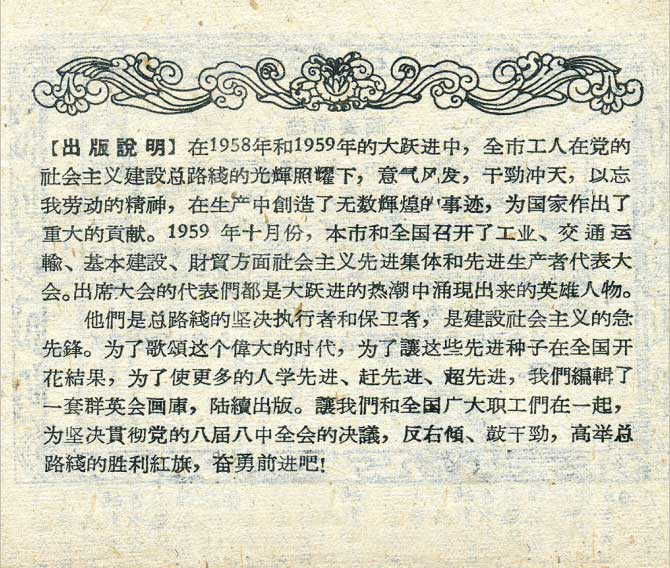 【出版說明】在1958年和1959年的大跃进中，全市工人在党的
社会主义建設总路綫的光輝照耀下，意气风发，干勁冲天，以忘
我劳动的精神，在生产中創造了无数輝煌的事迹，为国家作出了
重大的貢献。1959年十月份，本市和全国召开了工业、交通运
輸、基本建設、財貿方面社会主义先进集体和先进生产者代表大
会。出席大会的代表們都是大跃进的热潮中涌現出来的英雄人物。
他們是总路綫的坚决执行者和保卫者，是建設社会主义的急
先鋒。为了歌頌这个偉大的时代，为了讓这些先进种子在全国开
花結果，为了使更多的人学先进、赶先进、超先进，我們編輯了
一套群英会画庫，陆續出版。讓我們和全国广大职工們在一起，
为坚决貫彻党的八届八中全会的决議，反右傾、鼓干勁，高举总
路綫的胜利紅旗，奋勇前进吧！